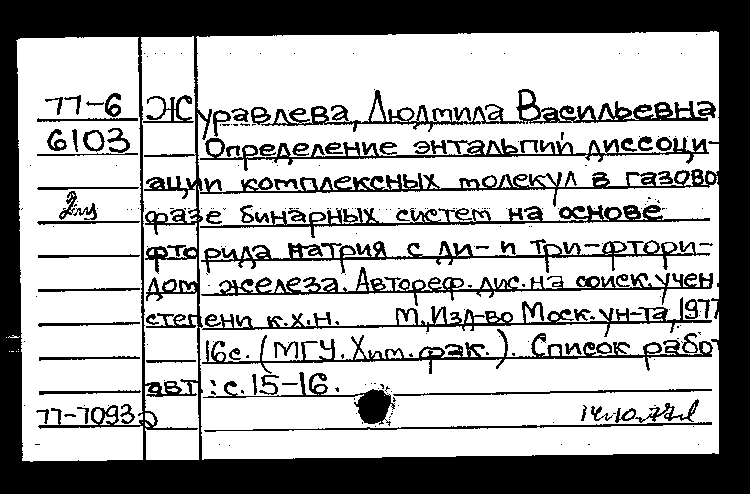 77-6 Журавлева, Людмила Васильевна
6103 Определение энтальпий диссоци-
ации комплексных молекул в газово
фазе бинарных систем на основе
фторида натрия с ди- и три-фтори-
дом железа. Автореф. дис. на соиск. учен.
степени к.х.н. М., Изд-во Моск. ун-та, 1977
16с. (МГУ. Хим. фак.). Список работ
авт.: с. 15-16.
77-7093